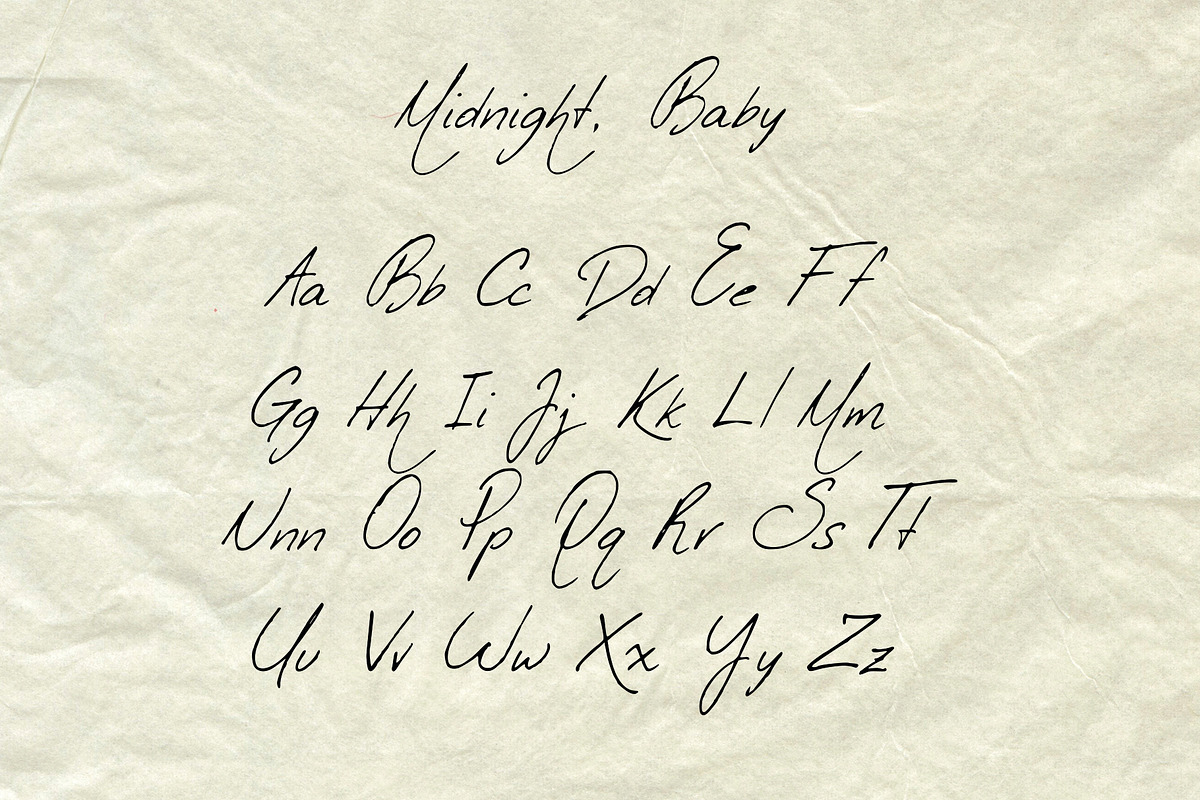 Midnight, Baby
Aa Bb Cc Dd Ee Ff
Gg Hh Ii Jj Kk Ll Mm
Nnn Oo Pp Qq Rr Ss Tt
Uu Vv Ww Xx Yy Zz